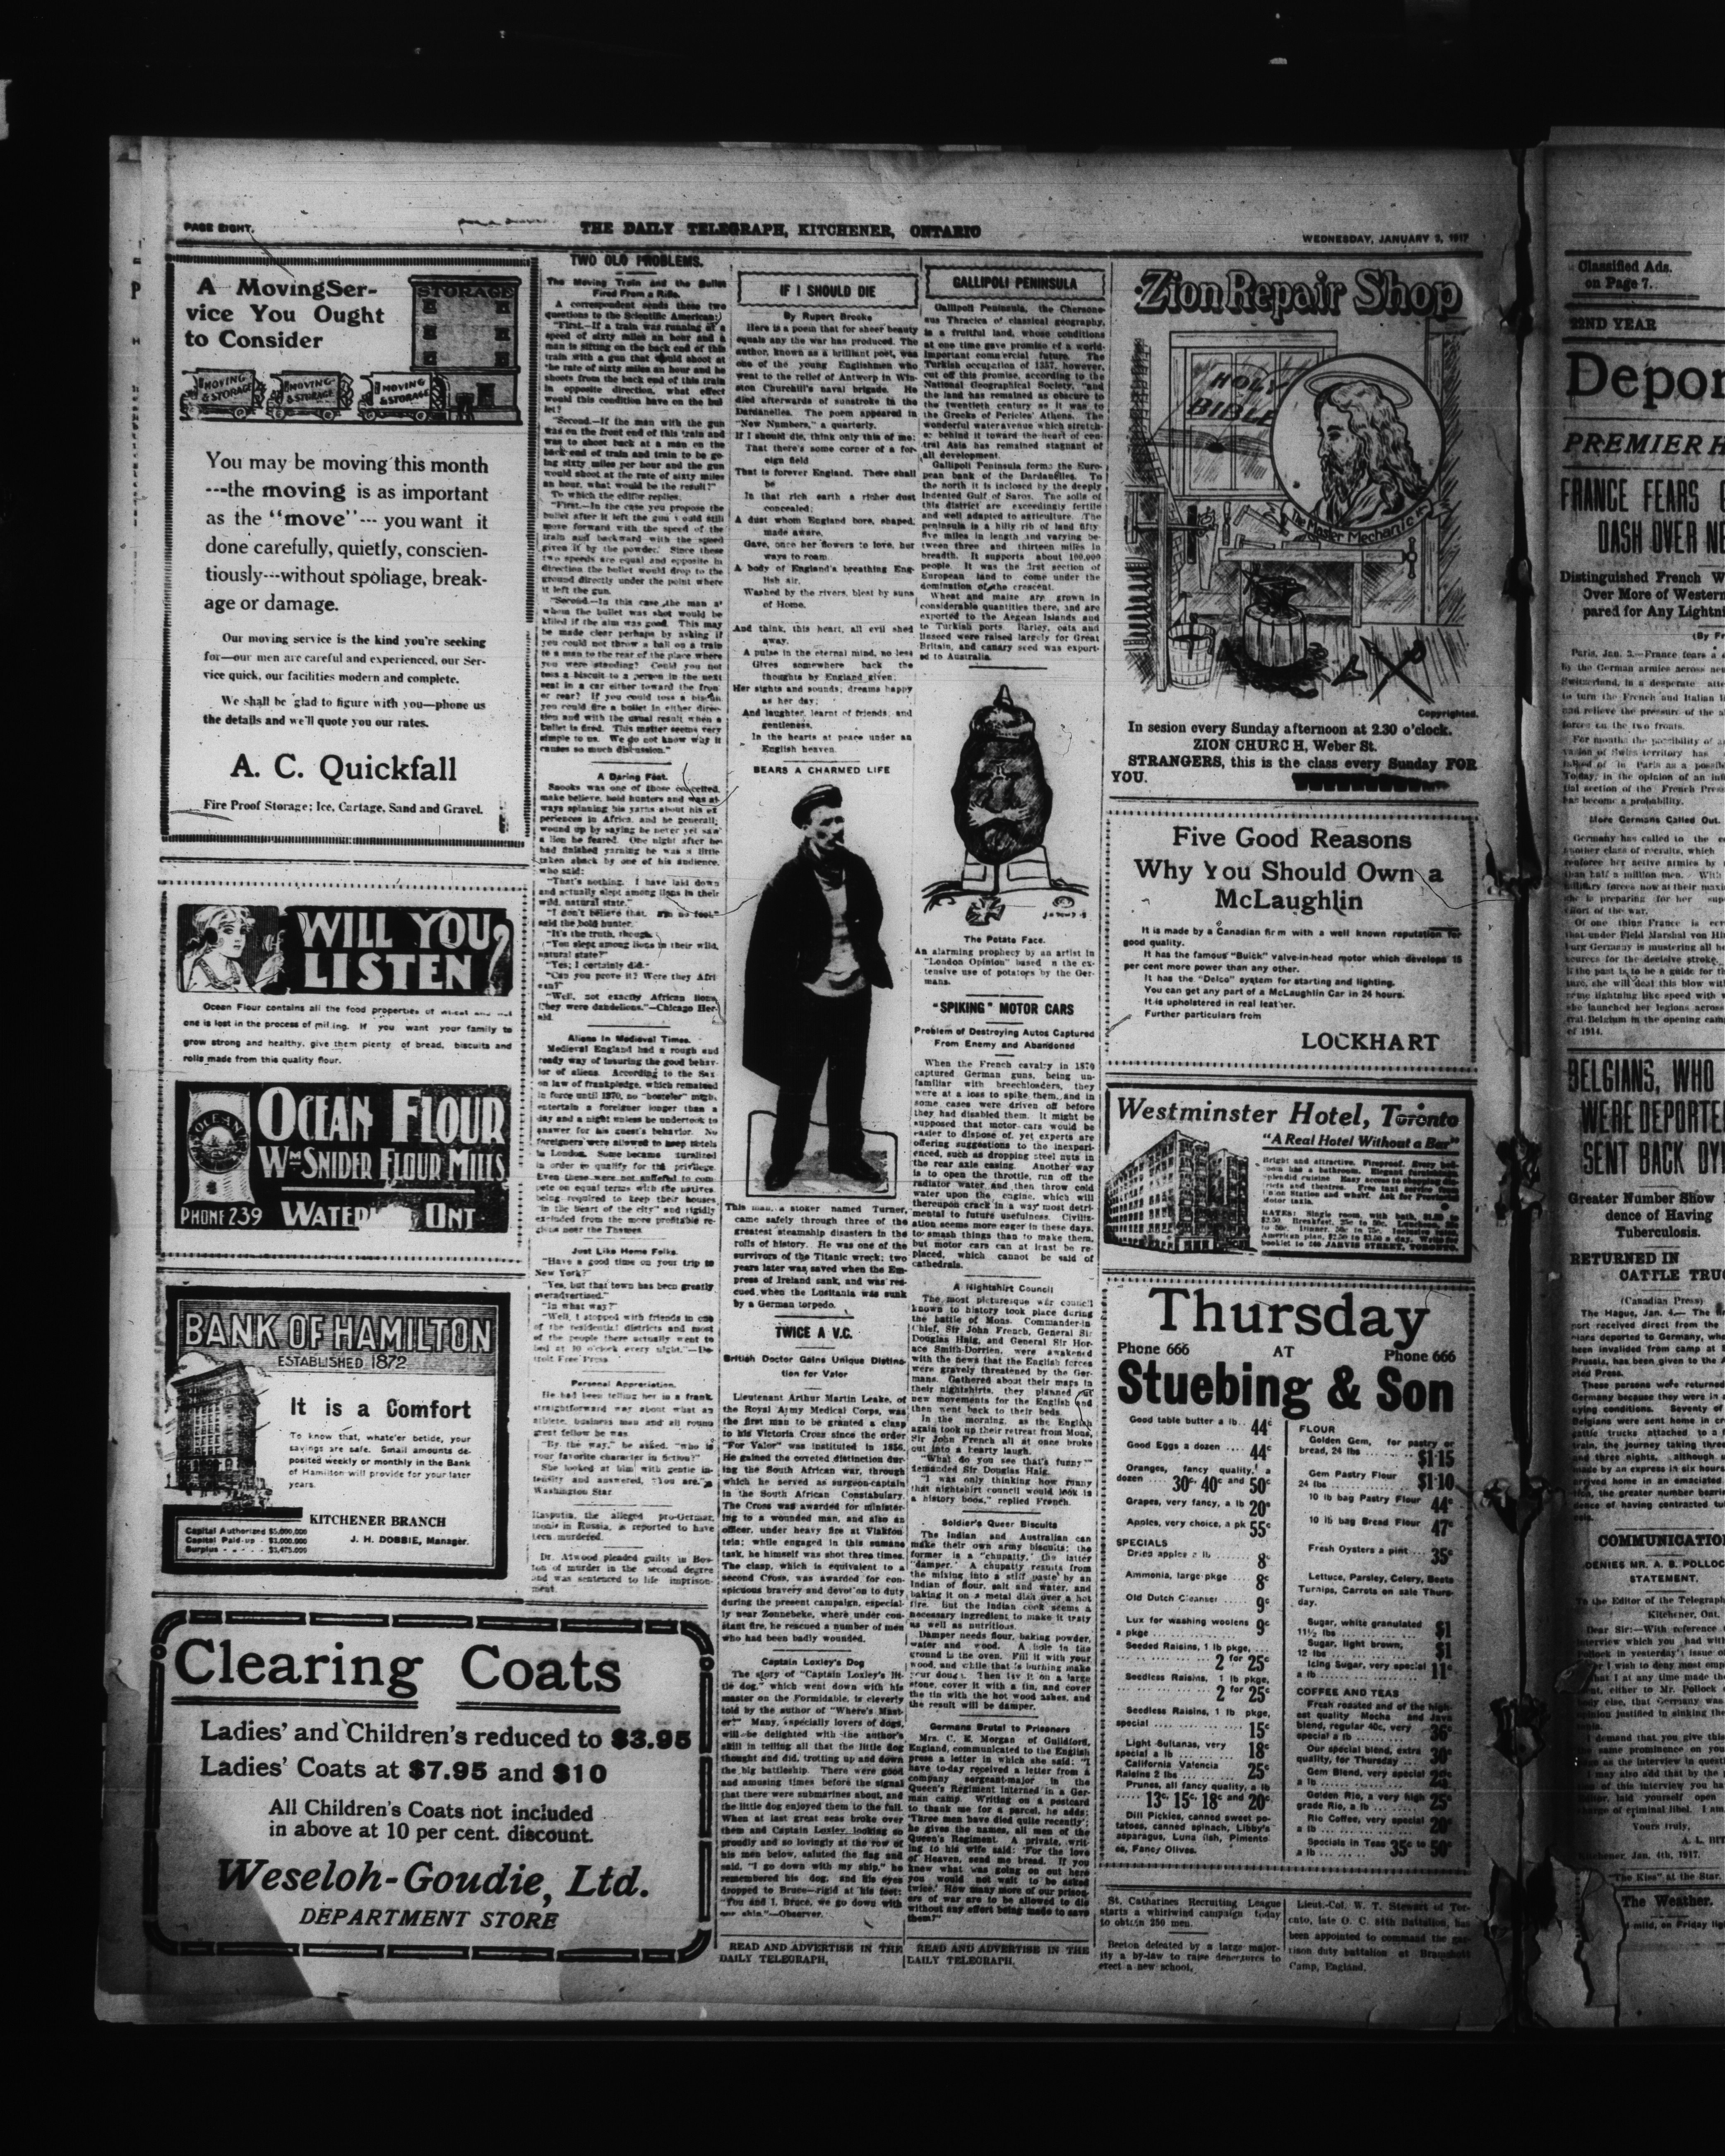 PAGE EIGHT.
THE DAILY TELEGRAPH, KITCHENER, ONTARIO
WEDNESDAY, JANUARY 3, 1917
A MovingSer-
vice You Ought
to Consider
STORAGE
MOVING & STORAGE
MOVING & STORAGE
MOVING & STORAGE
You may be moving this month
---the moving is as important
as the "move"--- you want it
done carefully, quietly, conscien-
tiously---without spoliage, break-
age or damage.
Our moving service is the kind you're seeking
for—our men are careful and experienced, our Ser-
vice quick, our facilities modern and complete.
We shall be glad to figure with you—phone us
the details and we'll quote you our rates.
A. C. Quickfall
Fire Proof Storage; Ice, Cartage, Sand and Gravel.
WILL YOU
LISTEN?
Ocean Flour contains all the food properties of
one is lost in the process of milling. If you want your family to
grow strong and healthy, give them plenty of bread, biscuits and
rolls made from this quality flour.
OCEAN FLOUR
WM SNIDER FLOUR MILLS
PHONE 239 ONT
BANK OF HAMILTON
ESTABLISHED 1872
It is a Comfort
To know that, whate'er betide, your
savings are safe. Small amounts de-
posited weekly or monthly in the Bank
of Hamilton will provide for your later
years.
KITCHENER BRANCH
J. H. DOBBIE, Manager.
Capital Authorized $5,000,000
Capital Paid-up - $3,000,000
Surplus - - - - $3,475,000
Clearing Coats
Ladies' and Children's reduced to $3.95
Ladies' Coats at $7.95 and $10
All Children's Coats not included
in above at 10 per cent. discount.
Weseloh-Goudie, Ltd.
DEPARTMENT STORE
TWO OLD PROBLEMS.
The Moving Train and the Bullet
Fired From a Rifle.
A correspondent sends these two
questions to the Scientific American:
"First.—If a train was running at a
speed of sixty miles an hour and a
man is sitting on the back end of this
train with a gun that would shoot at
the rate of sixty miles an hour and he
shoots from the back end of this train
in opposite direction, what effect
would this condition have on the bul
let?
"Second.—If the man with the gun
was on the front end of this train and
was to shoot back at a man on the
back end of train and train to be go-
ing sixty miles per hour and the gun
would shoot at the rate of sixty miles
an hour, what would be the result?"
To which the editor replies:
"First.—In the case you propose the
bullet after it left the gun would still
move forward with the speed of the
train and backward with the speed
given it by the powder. Since these
two speeds are equal and opposite in
direction the bullet would drop to the
ground directly under the point where
it left the gun.
"Second.—In this case the man at
whom the bullet was shot would be
killed if the aim was good. This may
be made clear perhaps by asking if
you could not throw a ball on a train
to a man to the rear of the place where
you were standing? Could you not
toss a biscuit to a person in the next
seat in a car either toward the front
or rear? If you could toss a biscuit
you could fire a bullet in either direc-
tion and with the usual result when a
bullet is fired. This matter seems very
simple to us. We do not know why it
causes so much discussion."
A Daring Feat.
Snooks was one of those conceited,
make believe, bold hunters and was al-
ways spinning his yarns about his ex
periences in Africa, and he generally
wound up by saying he never yet saw
a lion he feared. One night after he
had finished yarning he was a little
taken aback by one of his audience,
who said:
"That's nothing. I have laid down
and actually slept among lions in their
wild, natural state."
"I don't believe that. I'm no fool,"
said the bold hunter.
"It's the truth, though.
"You slept among lions in their wild,
natural state?"
"Yes; I certainly did."
"Can you prove it? Were they Afri
can?"
"Well, not exactly African lions.
They were dandelions."—Chicago Her-
ald.
Aliens In Medieval Times.
Medieval England had a rough and
ready way of insuring the good behav-
ior of aliens. According to the Sax
on law of frankpledge, which remained
in force until 1370, no "hosteler" might
entertain a foreigner longer than a
day and a night unless he undertook to
answer for his guest's behavior. No
foreigners were allowed to keep hotels
in London. Some became
in order to qualify for the privilege.
Even these were not suffered to com
pete on equal terms with the natives,
being required to keep their houses
"in the heart of the city" and rigidly
excluded from the more profitable re-
gions near the Thames.
Just Like Home Folks.
"Have a good time on your trip to
New York?"
"Yes, but that town has been greatly
overadvertised."
"In what way?"
"Well, I stopped with friends in one
of the residential districts and most
of the people there actually went to
bed at 10 o'clock every night."—De-
troit Free Press
Personal Appreciation.
He had been telling her in a frank,
straightforward way about what an
athlete, business man and all round
great fellow he was
"By the way," he asked, "who is
your favorite character in fiction?"
She looked at him with gentle in-
tensity and answered, "You are."
Washington Star.
Rasputin, the alleged pro-German
monk in Russia, is reported to have
been murdered.
Dr. Atwood pleaded guilty in Bos-
ton of murder in the second degree
and was sentenced to life imprison-
ment.
IF I SHOULD DIE
By Rupert Brooke
Here is a poem that for sheer beauty
equals any the war has produced. The
author, known as a brilliant poet, was
one of the young Englishmen who
went to the relief of Antwerp in Win-
ston Churchill's naval brigade. He
died afterwards of sunstroke in the
Dardanelles. The poem appeared in
"New Numbers," a quarterly.
If I should die, think only this of me:
That there's some corner of a for-
eign field
That is forever England. There shall
be
In that rich earth a richer dust
concealed;
A dust whom England bore, shaped,
made aware,
Gave, once her flowers to love, her
ways to roam.
A body of England's breathing Eng-
lish air,
Washed by the rivers, blest by suns
of Home.
And think, this heart, all evil shed
away,
A pulse in the eternal mind, no less
Gives somewhere back the
thoughts by England given;
Her sights and sounds; dreams happy
as her day;
And laughter, learnt of friends; and
gentleness.
In the hearts at peace under an
English heaven.
BEARS A CHARMED LIFE
This man, a stoker named Turner,
came safely through three of the
greatest steamship disasters in the
rolls of history. He was one of the
survivors of the Titanic wreck; two
years later was saved when the Em-
press of Ireland sank, and was res-
cued when the Lusitania was sunk
by a German torpedo.
TWICE A V.C.
British Doctor Gains Unique Distinc-
tion for Valor
Lieutenant Arthur Martin Leake, of
the Royal Army Medical Corps, was
the first man to be granted a clasp
to his Victoria Cross since the order
"For Valor" was instituted in 1856.
He gained the coveted distinction dur-
ing the South African war, through
which he served as surgeon-captain
in the South African Constabulary.
The Cross was awarded for minister-
ing to a wounded man, and also an
officer, under heavy fire at Vlakfon-
tein; while engaged in this humane
task, he himself was shot three times.
The clasp, which is equivalent to a
second Cross, was awarded for con-
spicuous bravery and devotion to duty
during the present campaign, especial-
ly near Zonnebeke, where under con-
stant fire, he rescued a number of men
who had been badly wounded.
Captain Loxley's Dog
The story of "Captain Loxley's lit-
tle dog," which went down with his
master on the Formidable, is cleverly
told by the author of "Where's Mast-
er?" Many, especially lovers of dogs,
will be delighted with the author's
skill in telling all that the little dog
thought and did, trotting up and down
the big battleship. There were good
and amusing times before the signal
that there were submarines about, and
the little dog enjoyed them to the full.
When at last great seas broke over
them and Captain Loxley, looking so
proudly and so lovingly at the row of
his men below, saluted the flag and
said, "I go down with my ship," he
remembered his dog, and his eyes
dropped to Bruce—rigid at his feet:
"You and I, Bruce, we go down with
our ship."—Observer.
READ AND ADVERTISE IN THE
DAILY TELEGRAPH.
GALLIPOLI PENINSULA
Gallipoli Peninsula, the Cherson-
sus Thracica of classical geography,
is a fruitful land, whose conditions
at one time gave promise of a world-
important commercial future. The
Turkish occupation of 1357, however,
cut off this promise, according to the
National Geographical Society, "and
the land has remained as obscure to
the twentieth century as it was to
the Greeks of Pericles' Athens. The
wonderful water avenue which stretch-
es behind it toward the heart of cen-
tral Asia has remained stagnant of
all development.
Gallipoli Peninsula forms the Euro-
pean bank of the Dardanelles. To
the north it is inclosed by the deeply
indented Gulf of Saros. The soils of
this district are exceedingly fertile
and well adapted to agriculture. The
peninsula is a hilly rib of land fifty-
five miles in length and varying be-
tween three and thirteen miles in
breadth. It supports about 100,000
people. It was the first section of
European land to come under the
domination of the crescent.
Wheat and maize are grown in
considerable quantities there, and are
exported to the Aegean Islands and
to Turkish ports. Barley, oats and
linseed were raised largely for Great
Britain, and canary seed was export-
ed to Australia.
The Potato Face.
An alarming prophecy by an artist in
"London Opinion" based on the ex-
tensive use of potatoes by the Ger-
mans.
"SPIKING" MOTOR CARS
Problem of Destroying Autos Captured
From Enemy and Abandoned
When the French cavalry in 1870
captured German guns, being un-
familiar with breechloaders, they
were at a loss to spike them, and in
some cases were driven off before
they had disabled them. It might be
supposed that motor cars would be
easier to dispose of, yet experts are
offering suggestions to the inexperi-
enced, such as dropping steel nuts in
the rear axle casing. Another way
is to open the throttle, run off the
radiator water, and then throw cold
water upon the engine, which will
thereupon crack in a way most detri-
mental to future usefulness. Civiliz-
ation seems more eager in these days,
to smash things than to make them,
but motor cars can at least be re-
placed, which cannot be said of
cathedrals.
A Nightshirt Council
The most picturesque war council
known to history took place during
the battle of Mons. Commander-in-
Chief, Sir John French, General Sir
Douglas Haig, and General Sir Hor-
ace Smith-Dorrien, were awakened
with the news that the English forces
were gravely threatened by the Ger-
mans. Gathered about their maps in
their nightshirts, they planned out
new movements for the English and
then went back to their beds.
In the morning, as the English
again took up their retreat from Mons,
Sir John French all at once broke
out into a hearty laugh.
"What do you see that's funny?"
demanded Sir Douglas Haig.
"I was only thinking how funny
that nightshirt council would look in
a history book," replied French.
Soldier's Queer Biscuits
The Indian and Australian can
make their own army biscuits; the
former is a "chupatty," the latter
"damper." A chupatty results from
the mixing into a stiff paste by an
Indian of flour, salt and water, and
baking it on a metal dish over a hot
fire. But the Indian cook seems a
necessary ingredient to make it tasty
as well as nutritious.
Damper needs flour, baking powder,
water and wood. A hole in the
ground is the oven. Fill it with your
wood, and while that is burning make
your dough. Then lay it on a large
stone, cover it with a tin, and cover
the tin with the hot wood ashes, and
the result will be damper.
Germans Brutal to Prisoners
Mrs. C. E. Morgan of Guildford,
England, communicated to the English
press a letter in which she said: "I
have to-day received a letter from a
company sergeant-major in the
Queen's Regiment interned in a Ger-
man camp. Writing on a postcard
to thank me for a parcel, he adds:
'Three men have died quite recently';
he gives the names, all men of the
Queen's Regiment. A private, writ-
ing to his wife said: 'For the love
of Heaven, send me bread. If you
knew what was going on out here
you would not wait to be asked
twice.' How many more of our prison-
ers of war are to be allowed to die
without any effort being made to save
them?"
READ AND ADVERTISE IN THE
DAILY TELEGRAPH.
Zion Repair Shop
HOLY
BIBLE
The Master Mechanic
Copyrighted.
In sesion every Sunday afternoon at 2.30 o'clock.
ZION CHURCH, Weber St.
STRANGERS, this is the class every Sunday FOR
YOU.
Five Good Reasons
Why You Should Own a
McLaughlin
It is made by a Canadian firm with a well known reputation for
good quality.
It has the famous "Buick" valve-in-head motor which develops 15
per cent more power than any other.
It has the "Delco" system for starting and lighting.
You can get any part of a McLaughlin Car in 24 hours.
It is upholstered in real leather.
Further particulars from
LOCKHART
Westminster Hotel, Toronto
"A Real Hotel Without a Bar"
Bright and attractive. Fireproof. Every bed-
room has a bathroom. Elegant furnishings,
splendid cuisine. Easy access to shopping dis-
tricts and theatres. Free taxi service from
Union Station and wharf. Ask for
Motor taxis.
booklet to 240 JARVIS STREET, TORONTO.
Thursday
Phone 666 AT Phone 666
Stuebing & Son
Good table butter a lb.. 44c
Good Eggs a dozen .... 44c
Oranges, fancy quality, a
dozen .... 30c 40c and 50c
Grapes, very fancy, a lb 20c
Apples, very choice, a pk 55c
SPECIALS
Dried apples a lb........ 8c
Ammonia, large pkge .... 8c
Old Dutch Cleanser .... 9c
Lux for washing woolens
a pkge .......... 9c
Seeded Raisins, 1 lb pkge,
............ 2 for 25c
Seedless Raisins, 1 lb pkge,
............ 2 for 25c
Seedless Raisins, 1 lb pkge,
special .............. 15c
Light Sultanas, very
special a lb .......... 18c
California Valencia
Raisins 2 lbs .......... 25c
Prunes, all fancy quality, a lb
..... 13c, 15c 18c and 20c
Dill Pickles, canned sweet po-
tatoes, canned spinach, Libby's
asparagus, Luna fish, Pimento
es, Fancy Olives.
FLOUR
Golden Gem, for pastry or
bread, 24 lbs ...... $1.15
Gem Pastry Flour
24 lbs .............. $1.10
10 lb bag Pastry Flour 44c
10 lb bag Bread Flour 47c
Fresh Oysters a pint.... 35c
Lettuce, Parsley, Celery, Beets
Turnips, Carrots on sale Thurs-
day.
Sugar, white granulated
11½ lbs .............. $1
Sugar, light brown,
12 lbs .............. $1
Icing Sugar, very special
a lb ................ 11c
COFFEE AND TEAS
Fresh roasted and of the high-
est quality Mocha and Java
blend, regular 40c, very
special a lb .......... 36c
Our special blend, extra
quality, for Thursday .. 30c
Gem Blend, very special
a lb
Golden Rio, a very high
grade Rio, a lb ........ 25c
Rio Coffee, very special
a lb ................ 20c
Specials in Teas
a lb ...... 35c to 50c
St. Catharines Recruiting League
starts a whirlwind campaign today
to obtain 250 men.
Beeton defeated by a large major-
ity a by-law to raise debentures to
erect a new school.
Lieut.-Col. W. T. Stewart of Tor-
onto, late O. C. 84th Battalion, has
been appointed to command the gar-
rison duty battalion at Bramshott
Camp, England.
Classified Ads.
on Page 7.
22ND YEAR
Depor
PREMIER H
FRANCE FEARS G
DASH OVER NE
Distinguished French W
Over More of Western
pared for Any Lightni
(By Fr
More Germans Called Out.
BELGIANS, WHO
WERE DEPORTE
SENT BACK DY
Greater Number Show
dence of Having
Tuberculosis.
RETURNED IN
CATTLE TRUC
(Canadian Press)
COMMUNICATIO
DENIES MR. A. B. POLLOC
STATEMENT.
To the Editor of the Telegraph
Kitchener, Ont.
Yours truly,
Kitchener, Jan. 4th, 1917.
"The Kiss" at the Star.
The Weather.